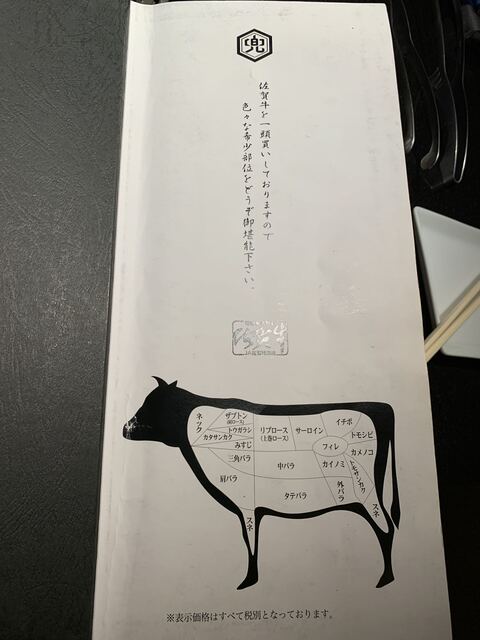 兜
佐賀牛を一頭買いしておりますので
色々な希少部位をどうぞ御堪能下さい。
佐賀牛
ネック
ザブトン
(肩ロース)
トウガラシ
カタサンカク
みすじ
リブロース
(上巻ロース)
サーロイン
イチボ
トモシビ
フィレ
カメノコ
三角バラ
中バラ
カイノミ
トモサンカク
肩バラ
タテバラ
外バラ
スネ
スネ
※表示価格はすべて税別となっております。